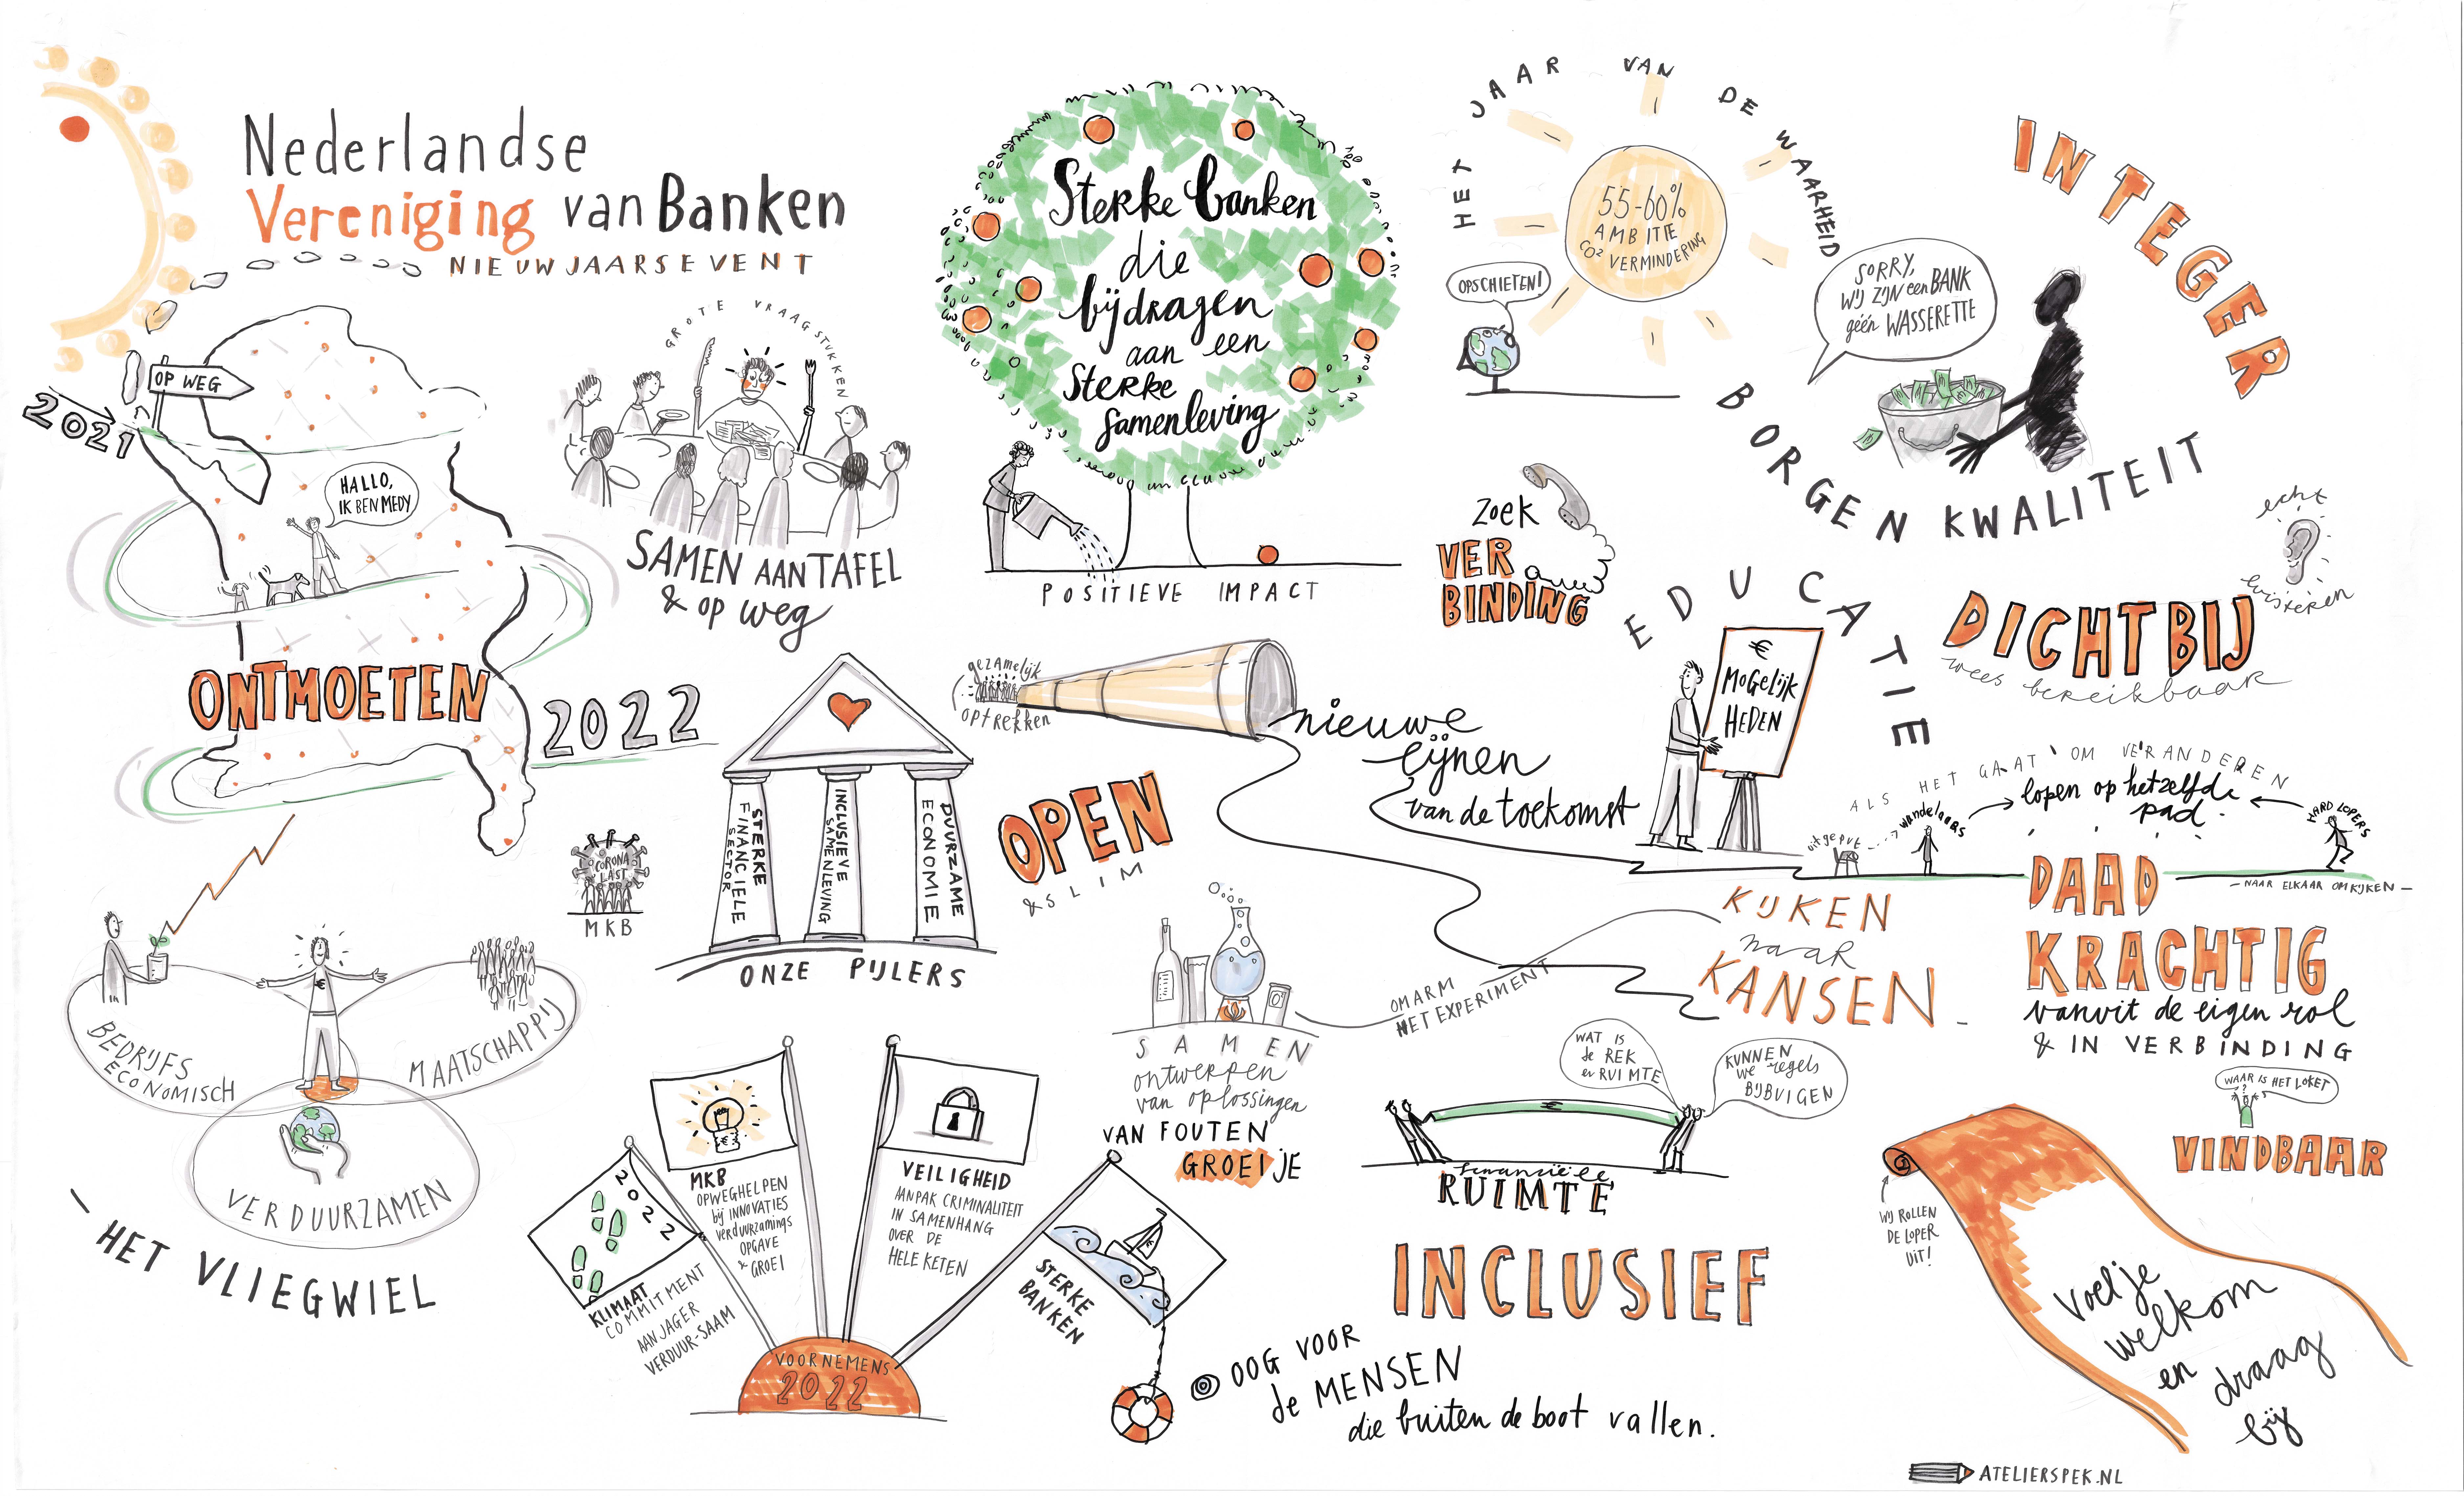 Nederlandse
Vereniging van Banken
NIEUWJAARSEVENT
OP WEG
2021
HALLO,
IK BEN MEDY
ONTMOETEN
2022
GROTE VRAAGSTUKKEN
SAMEN AAN TAFEL
& op weg
Sterke banken
die
bijdragen
aan een
Sterke
samenleving
POSITIEVE IMPACT
HET JAAR VAN DE WAARHEID
55-60%
AMBITIE
CO² VERMINDERING
OPSCHIETEN!
SORRY,
WIJ ZIJN een BANK
géén WASSERETTE
INTEGER
BORGEN KWALITEIT
zoek
VER
BINDING
echt
luisteren
DICHTBIJ
wees bereikbaar
EDUCATIE
€
MOGELIJK
HEDEN
gezamelijk
optrekken
nieuwe
lijnen
van de toekomst
ALS HET GAAT OM VERANDEREN
lopen op hetzelfde
pad
uitgeput
wandelaars
HARD LOPERS
- NAAR ELKAAR OMKIJKEN -
DAAD
KRACHTIG
vanuit de eigen rol
& IN VERBINDING
STERKE
FINANCIELE
SECTOR
INCLUSIEVE
SAMENLEVING
DUURZAME
ECONOMIE
ONZE PIJLERS
CORONA
LAST
MKB
OPEN
& SLIM
KIJKEN
naar
KANSEN
OMARM
HET EXPERIMENT
SAMEN
ontwerpen
van oplossingen
VAN FOUTEN
GROEI JE
€
BEDRIJFS
ECONOMISCH
MAATSCHAPPIJ
VERDUURZAMEN
- HET VLIEGWIEL
2022
KLIMAAT
COMMITMENT
AANJAGER
VERDUUR-SAAM
€
MKB
OPWEGHELPEN
bij INNOVATIES
verduurzamings
OPGAVE
& GROEI
VEILIGHEID
AANPAK CRIMINALITEIT
IN SAMENHANG
OVER DE
HELE KETEN
€
STERKE
BANKEN
VOORNEMENS
2022
WAT IS
de REK
en RUIMTE
KUNNEN
we regels
BIJBUIGEN
€
financiële
RUIMTE
INCLUSIEF
OOG VOOR
de MENSEN
die buiten de boot vallen.
WAAR IS HET LOKET
? ?
VINDBAAR
WIJ ROLLEN
DE LOPER
UIT!
voel je
welkom
en draag
bij
ATELIERSPEK.NL